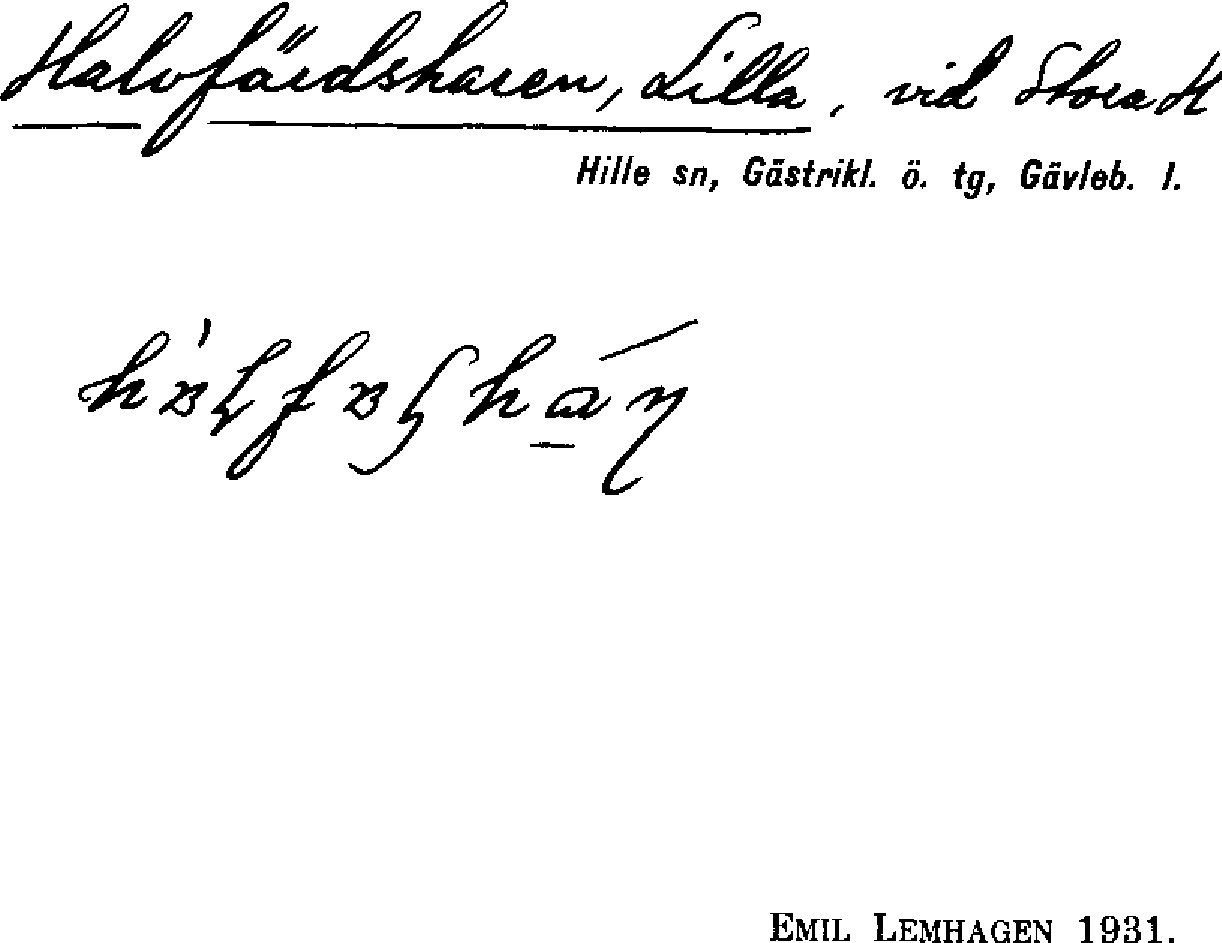 Halvfärdsharen, Lilla, vid Stora H
Hille sn, Gästrikl. ö. tg, Gävleb. l.
EMIL LEMHAGEN 1931.